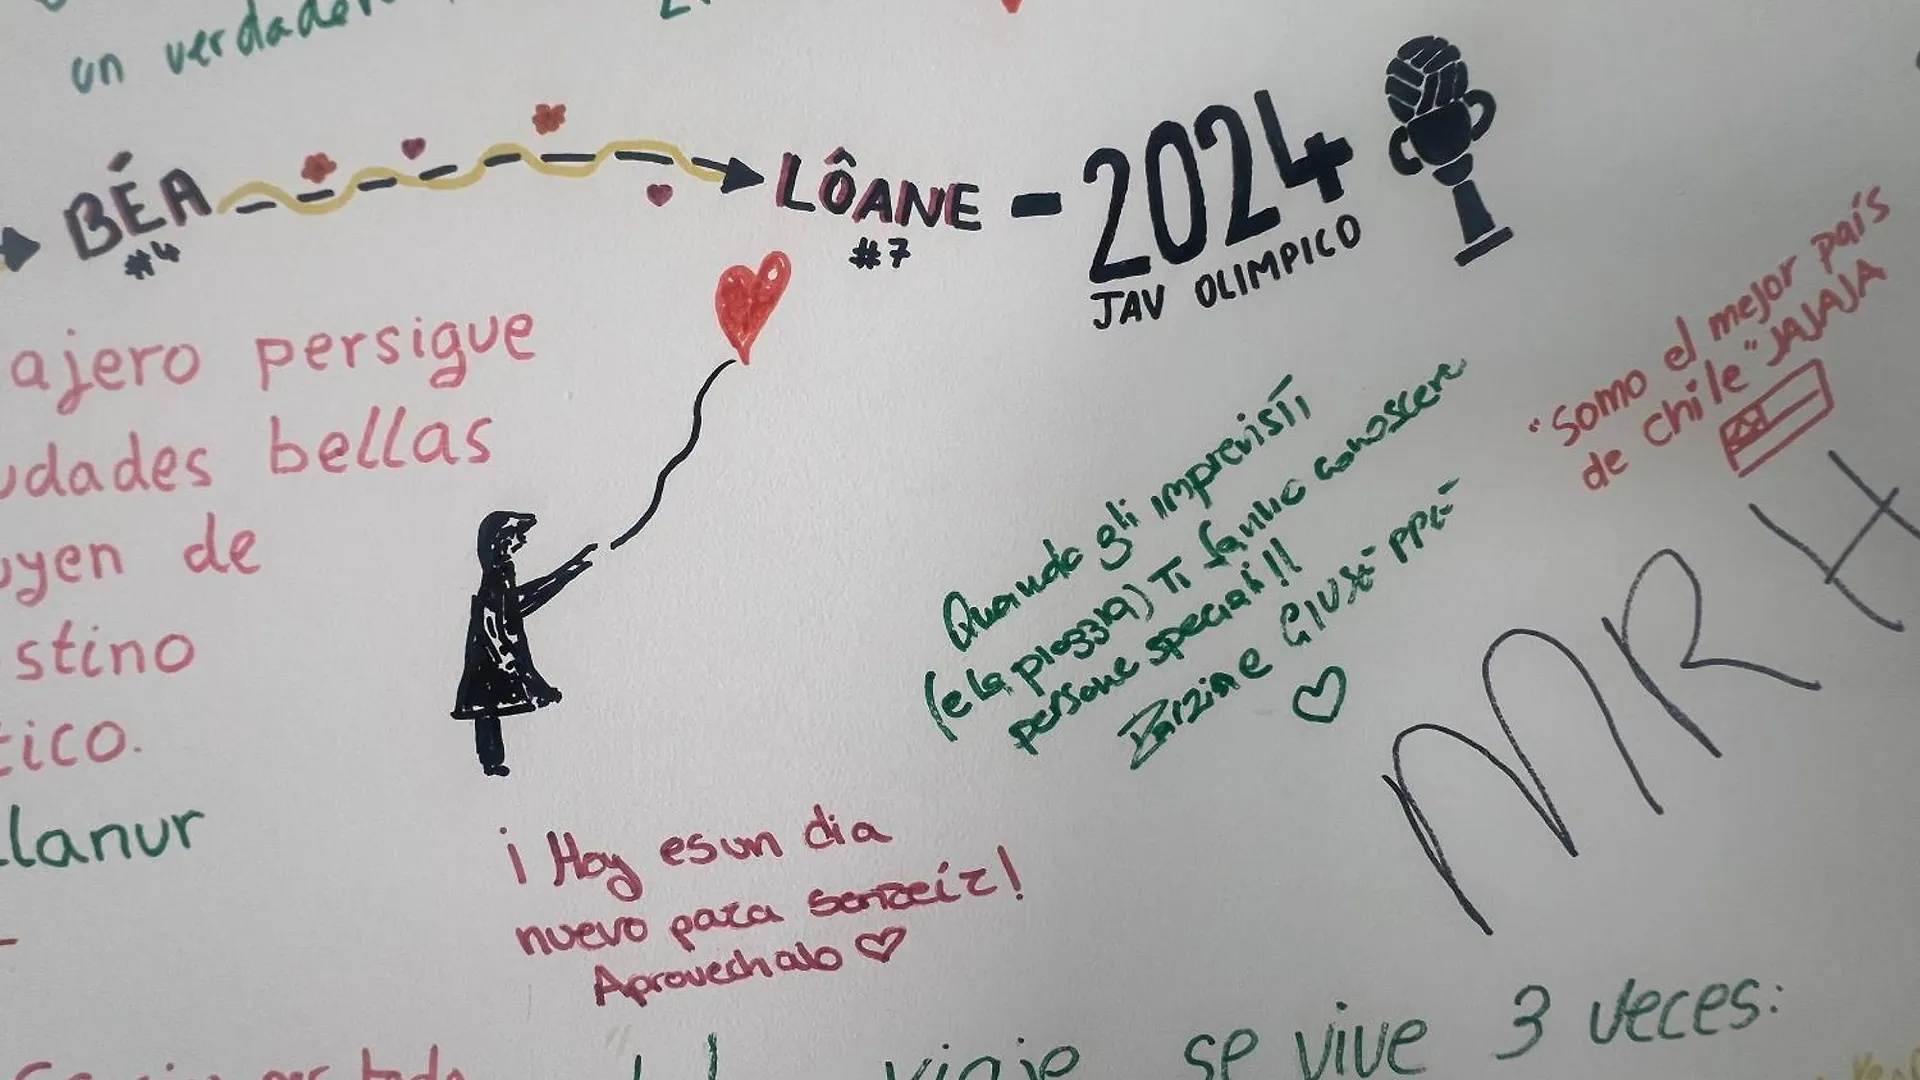 un verdader
BÉA
#4
LÔANE - 2024
#7
JAV OLIMPICO
ajero persigue
udades bellas
uyen de
stino
tico.
llanur
"Somo el mejor país
de chile" JAJAJA
Quando gli imprevisti
(e la pioggia) Ti fanno conoscere
persone speciali!!
e GIUSÈ PPÈ
MRH
¡Hoy es un dia
nuevo para sonreír!
Aprovechalo
viaje se vive 3 veces: